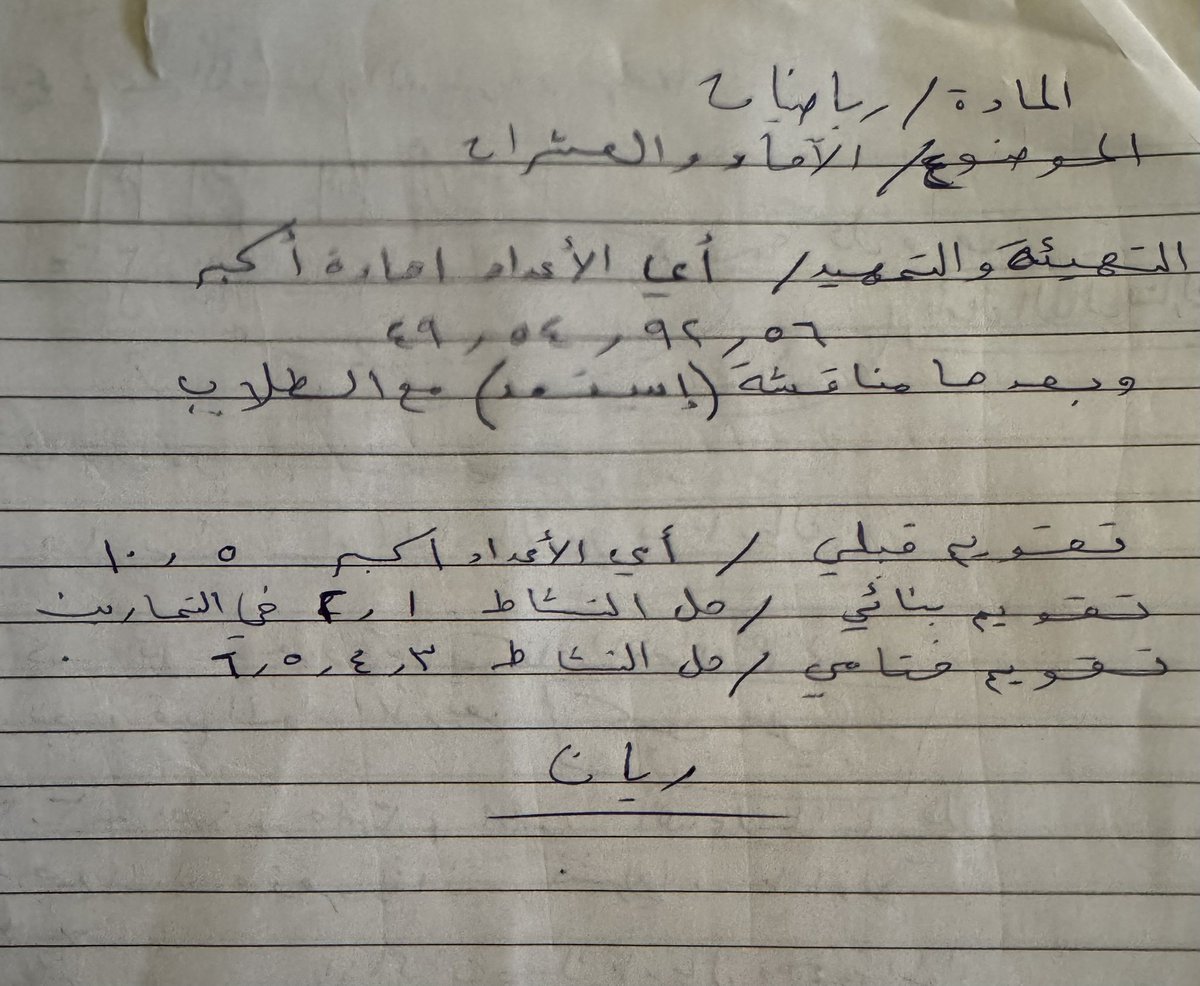 المادة / رياضيات
الموضوع / الآحاد والعشرات
التهيئة والتمهيد / أي الأعداد احاده أكبر
٥٦ , ٩٢ , ٥٤ , ٤٩
وبعدها مناقشة (إستعد) مع الطلاب
تقويم قبلي / أي الأعداد اكبر ٥ , ١٠
تقويم بنائي / حل النشاط ١ , ٢ في التمارين
تقويم ختامي / حل النشاط ٣ , ٤ , ٥ , ٦
ريان